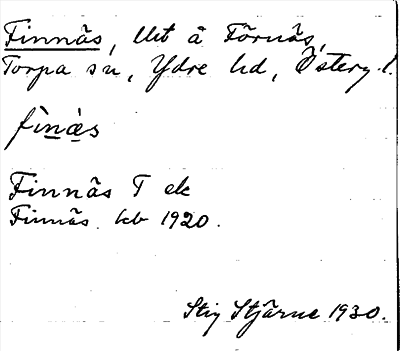 Finnäs, lht åFörnäs,
Torpa sn, Ydre hd, Österg.l.
fìnæ̀s
Finnäs T ek
Finnäs kb 1920.
Stig Stjärne 1930.